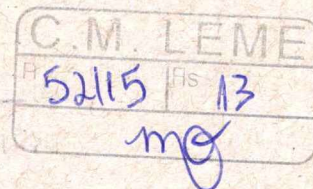 C.M. LEME
P 52/15 Fls 13